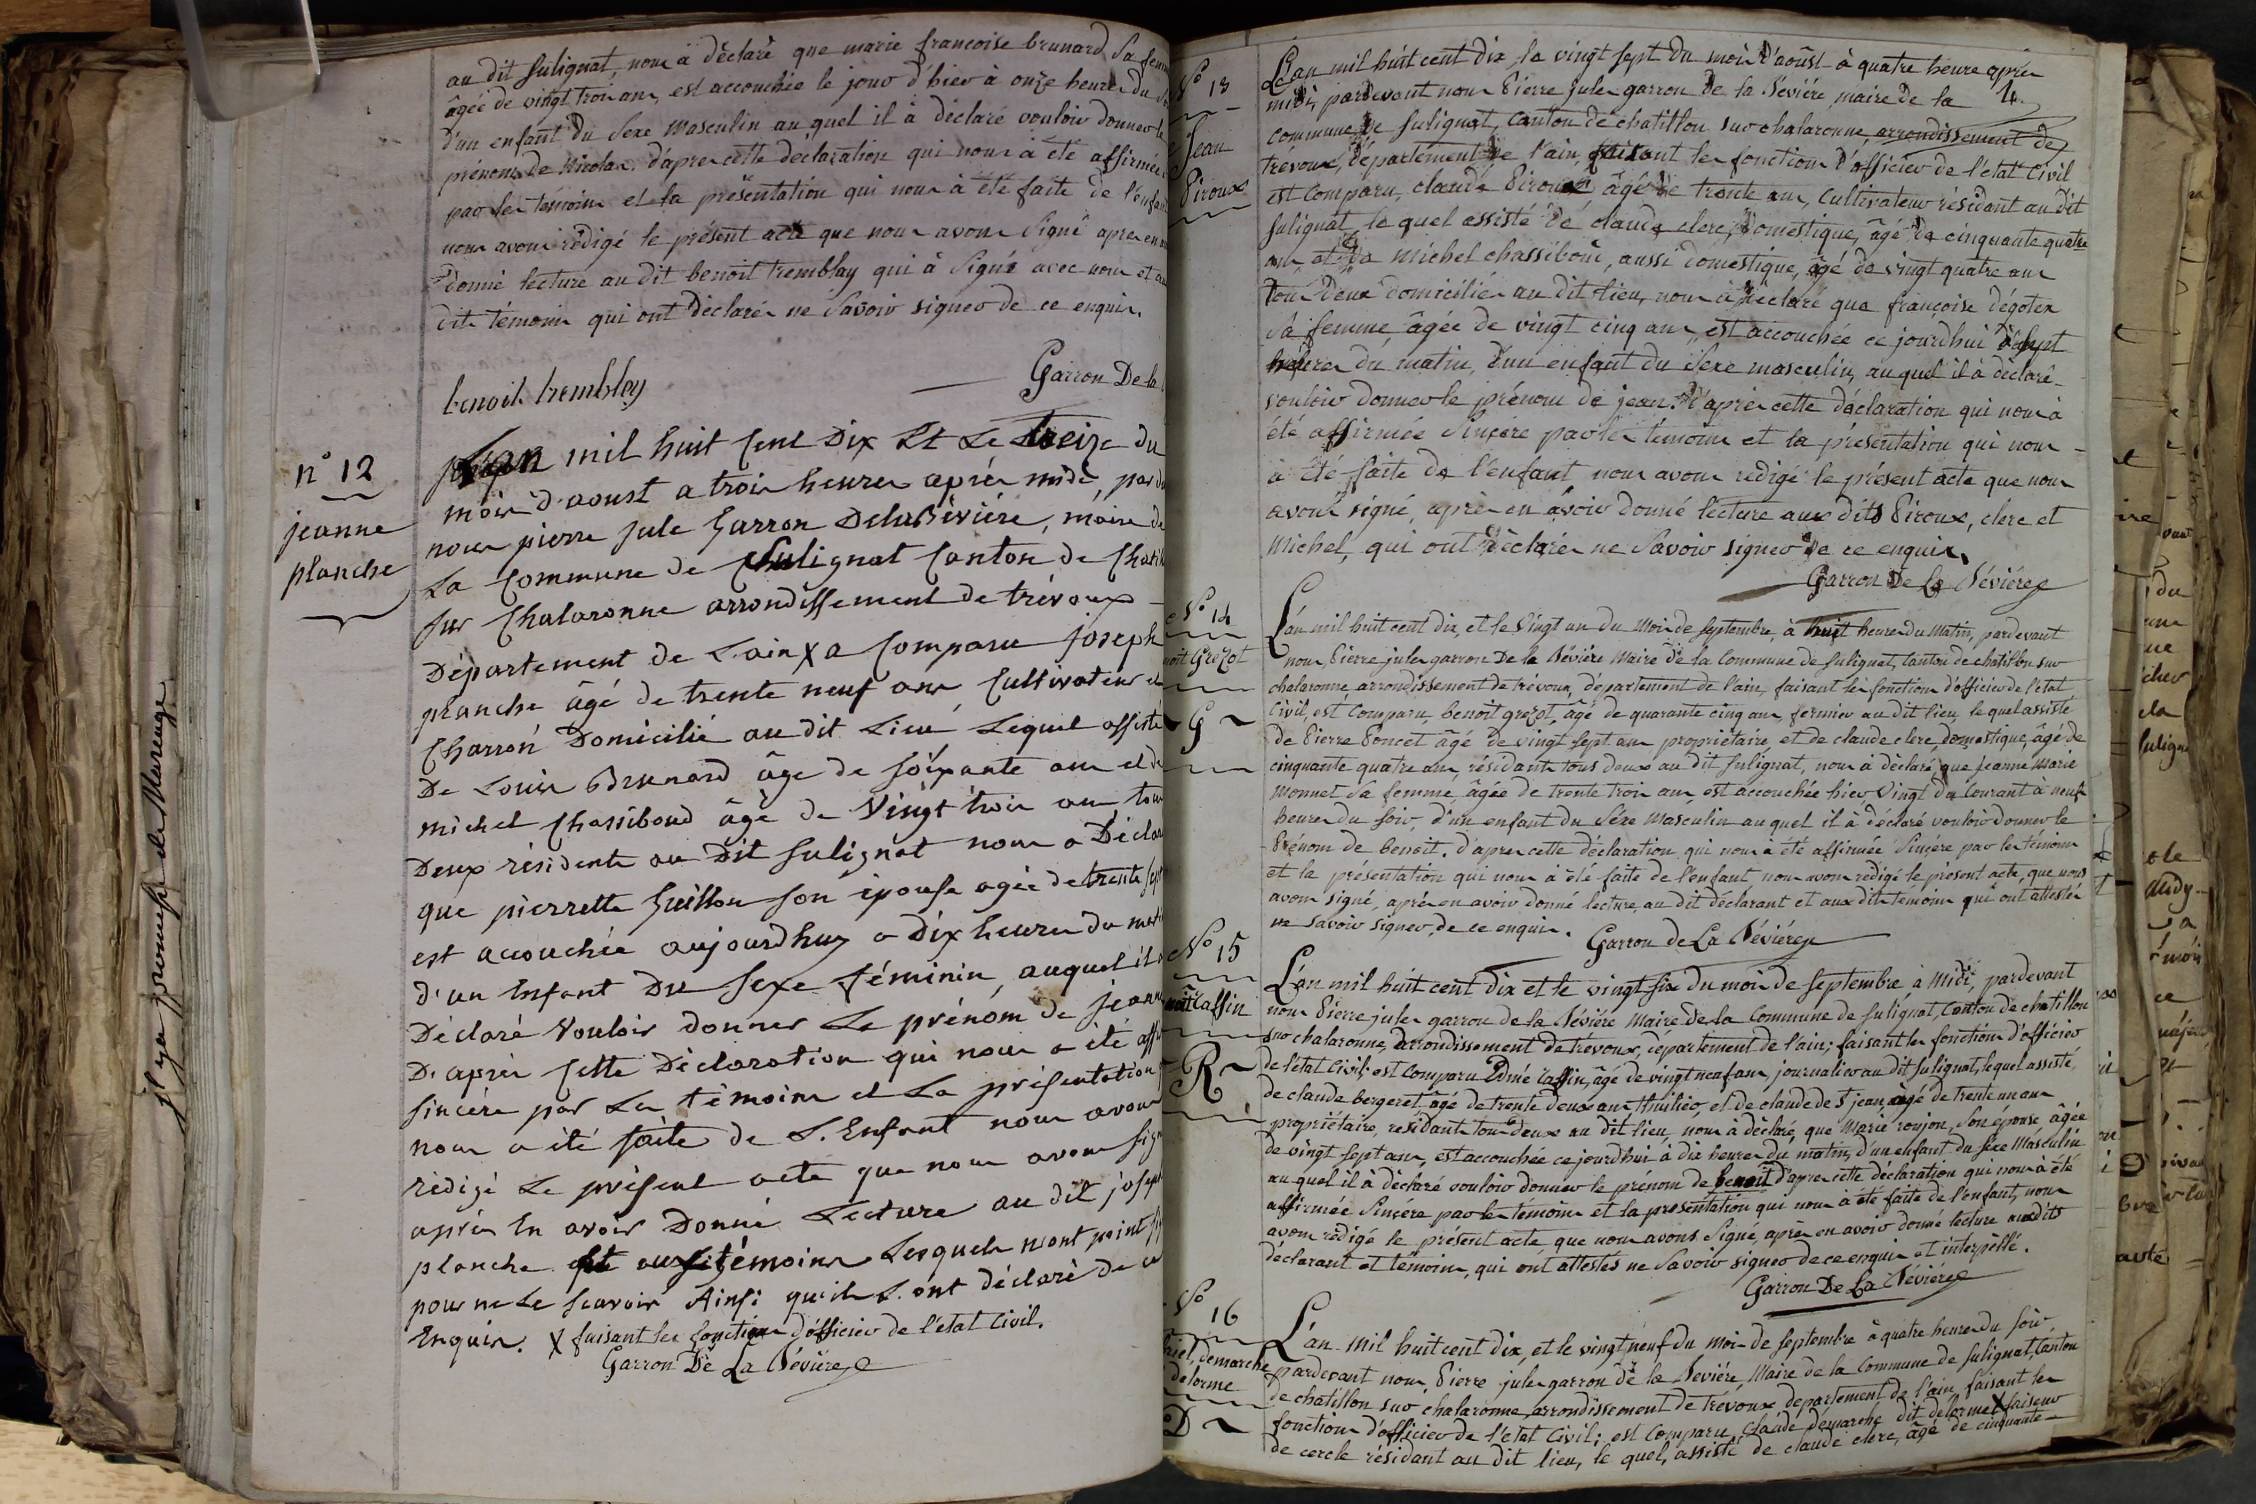 au dit Sulignat, nous à déclaré que marie francoise brunard, Sa fem
âgée de vingt trois ans, est accouchée le jour d'hier à onze heures du
d'un enfant du Sexe Masculin au quel il à déclaré vouloir donner le
prénom de Nicolas. d'apres cette déclaration qui nous à été affirmée
par les témoins et la présentation qui nous à été faite de l'enfa
nous avons rédigé le présent acte que nous avons Signé apres en
donné lecture au dit benoit tremblay qui à Signé avec nous et au
dits témoins qui ont déclarés ne Savoir signer de ce enquis.
benoit trembley
Garron De la
n° 12
jeanne
planche
L'an mil huit Cent Dix Et Le treize du
mois d'aoust a trois heures après midi, par d
nous pierre Jule Garron DelaBévière, maire de
La Commune de Sulignat Canton de Chatil
sur Chalaronne arrondissement de trévoux
Département de L'ain X a Comparu joseph
planche âgé de trente neuf ans Cultivateur et
Charron Domicilié au dit Lieu Lequel assisté
De Louis Brunard âge de soixante ans et de
michel Chassiboud âgé de Vingt trois ans tous
Deux résidents au Dit Sulignat nous a Décla
que pierrette Guillon son épouse agée de trente sept
est acouchée aujourdhuy a Dix heures du mat
d'un Enfant Du Sexe féminin, auquel il a
Déclaré Vouloir donner Le prénom de jeann
D'après Cette Déclaration qui nous a été affi
sincère par Les témoins et La présentation
nous a été faite de L'Enfant nous avons
rédigé Le présent acte que nous avons sign
après En avoir Donné Lecture au dit joseph
planche et aux témoins Lesquels n'ont point
pour ne Le scavoir Ainsi qu'ils L'ont déclaré de ce
Enquis. X faisant les fonctions d'officier de l'état Civil.
Garron De La Bévière
j'l y a promesse de Mareuge
N° 13
Jean
Piroux
4.
L'an mil huit cent dix, le vingt sept du mois d'août à quatre heures après
midi, pardevant nous Pierre Jules garron De la Bévière, maire de la
commune de Sulignat, canton de chatillon sur chalaronne, arrondissement de
trévoux, département de l'ain, faisant les fonctions d'officier de l'état Civil
est comparu, claude Piroux âgé de trente ans, cultivateur résidant au dit
Sulignat, le quel assisté de claude clerc, domestique, âgé de cinquante quatre
ans, et de Michel chassiboud, aussi domestique, âgé de vingt quatre ans
tous Deux domiciliés au dit lieu, nous à déclaré que françoise dégotex
Sa femme, âgée de vingt cinq ans, est accouchée ce jourdhui à sept
heures du matin, d'un enfant du Sexe masculin, au quel il à déclaré
vouloir donner le prénom de jean. d'après cette déclaration qui nous à
été affirmée Sincère par les témoins et la présentation qui nous
à été faite de l'enfant, nous avons redigé le présent acte que nous
avons signé, après en avoir donné lecture aux dits Piroux, clerc et
Michel, qui ont déclarés ne Savoir signer de ce enquis.
Garron De La Bévière
N° 14
noit Grezot
G
L'an mil huit cent dix, et le Vingt un du Mois de Septembre, à huit heures du Matin, pardevant
nous, Pierre jules garron De la Bévière Maire de la Commune de Sulignat, canton de chatillon sur
chalaronne, arrondissement de trévoux, département de l'ain, faisant les fonctions d'officier de l'état
Civil, est comparu, benoit grezot, âgé de quarante cinq ans, fermier au dit lieu, le quel assisté
de Pierre Poncet âgé de vingt sept ans, propriétaire, et de claude clerc, domestique, âgé de
cinquante quatre ans, résidants tous deux au dit Sulignat, nous à déclaré que Jeanne Marie
Monnet Sa femme, âgée de trente trois ans, est accouchée hier vingt du Courant à neuf
heures du Soir, d'un enfant du Séxe Masculin au quel il à déclaré vouloir donner le
Prénom de benoit. d'apres cette déclaration qui nous à été affirmée Sincère par les témoins
et la présentation qui nous à été faite de l'enfant, nous avons redigé le présent acte, que nous
avons signé, après en avoir donné lecture, au dit déclarant et aux dits témoins qui ont attestés
ne savoir signer, de ce enquis.
Garron de La Bévière
N° 15
noit Caffin
R
L'an mil huit cent dix et le vingt six du mois de septembre, à Midi, pardevant
nous Pierre jules garron de la Bévière Maire de la Commune de Sulignat, Canton de chatillon
sur chalaronne, arrondissement de trévoux, département de l'ain; faisant les fonctions d'officier
de l'état Civil; est comparu Edmé Caffin, âgé de vingt neuf ans, journalier au dit Sulignat, lequel assisté
de claude bergeret âgé de trente deux ans, Huilier, et de claude de St jean, âgé de trente un ans
propriétaire, residants tous deux au dit lieu, nous à déclaré, que Marie roujon, Son épouse, âgée
de vingt Sept ans, est accouchée ce jourdhui à dix heures du matin, d'un enfant du Séxe Masculin
au quel il à déclaré vouloir donner le prénom de benoit d'apres cette déclaration qui nous à été
affirmée Sincère par les témoins et la présentation qui nous à été faite de l'enfant, nous
avons redigé le présent acte que nous avons Signé, après en avoir donné lecture au dits
déclarant et témoins, qui ont attestés ne Savoir signer de ce enquis et interpéllé.
Garron De La Bévière
N° 16
demarche
delorme
D
L'an mil huit cent dix, et le vingt neuf du mois de Septembre à quatre heures du soir,
pardevant nous, Pierre jules garron de la Bevière, Maire de la Commune de Sulignat, Canton
de chatillon sur chalaronne, arrondissement de Trévoux département de l'ain, faisant les
fonctions d'officier de l'état Civil; est comparu, claude démarche dit délorme X faiseur
de cercle résidant au dit lieu, le quel, assisté de claude clerc, âgé de cinquante